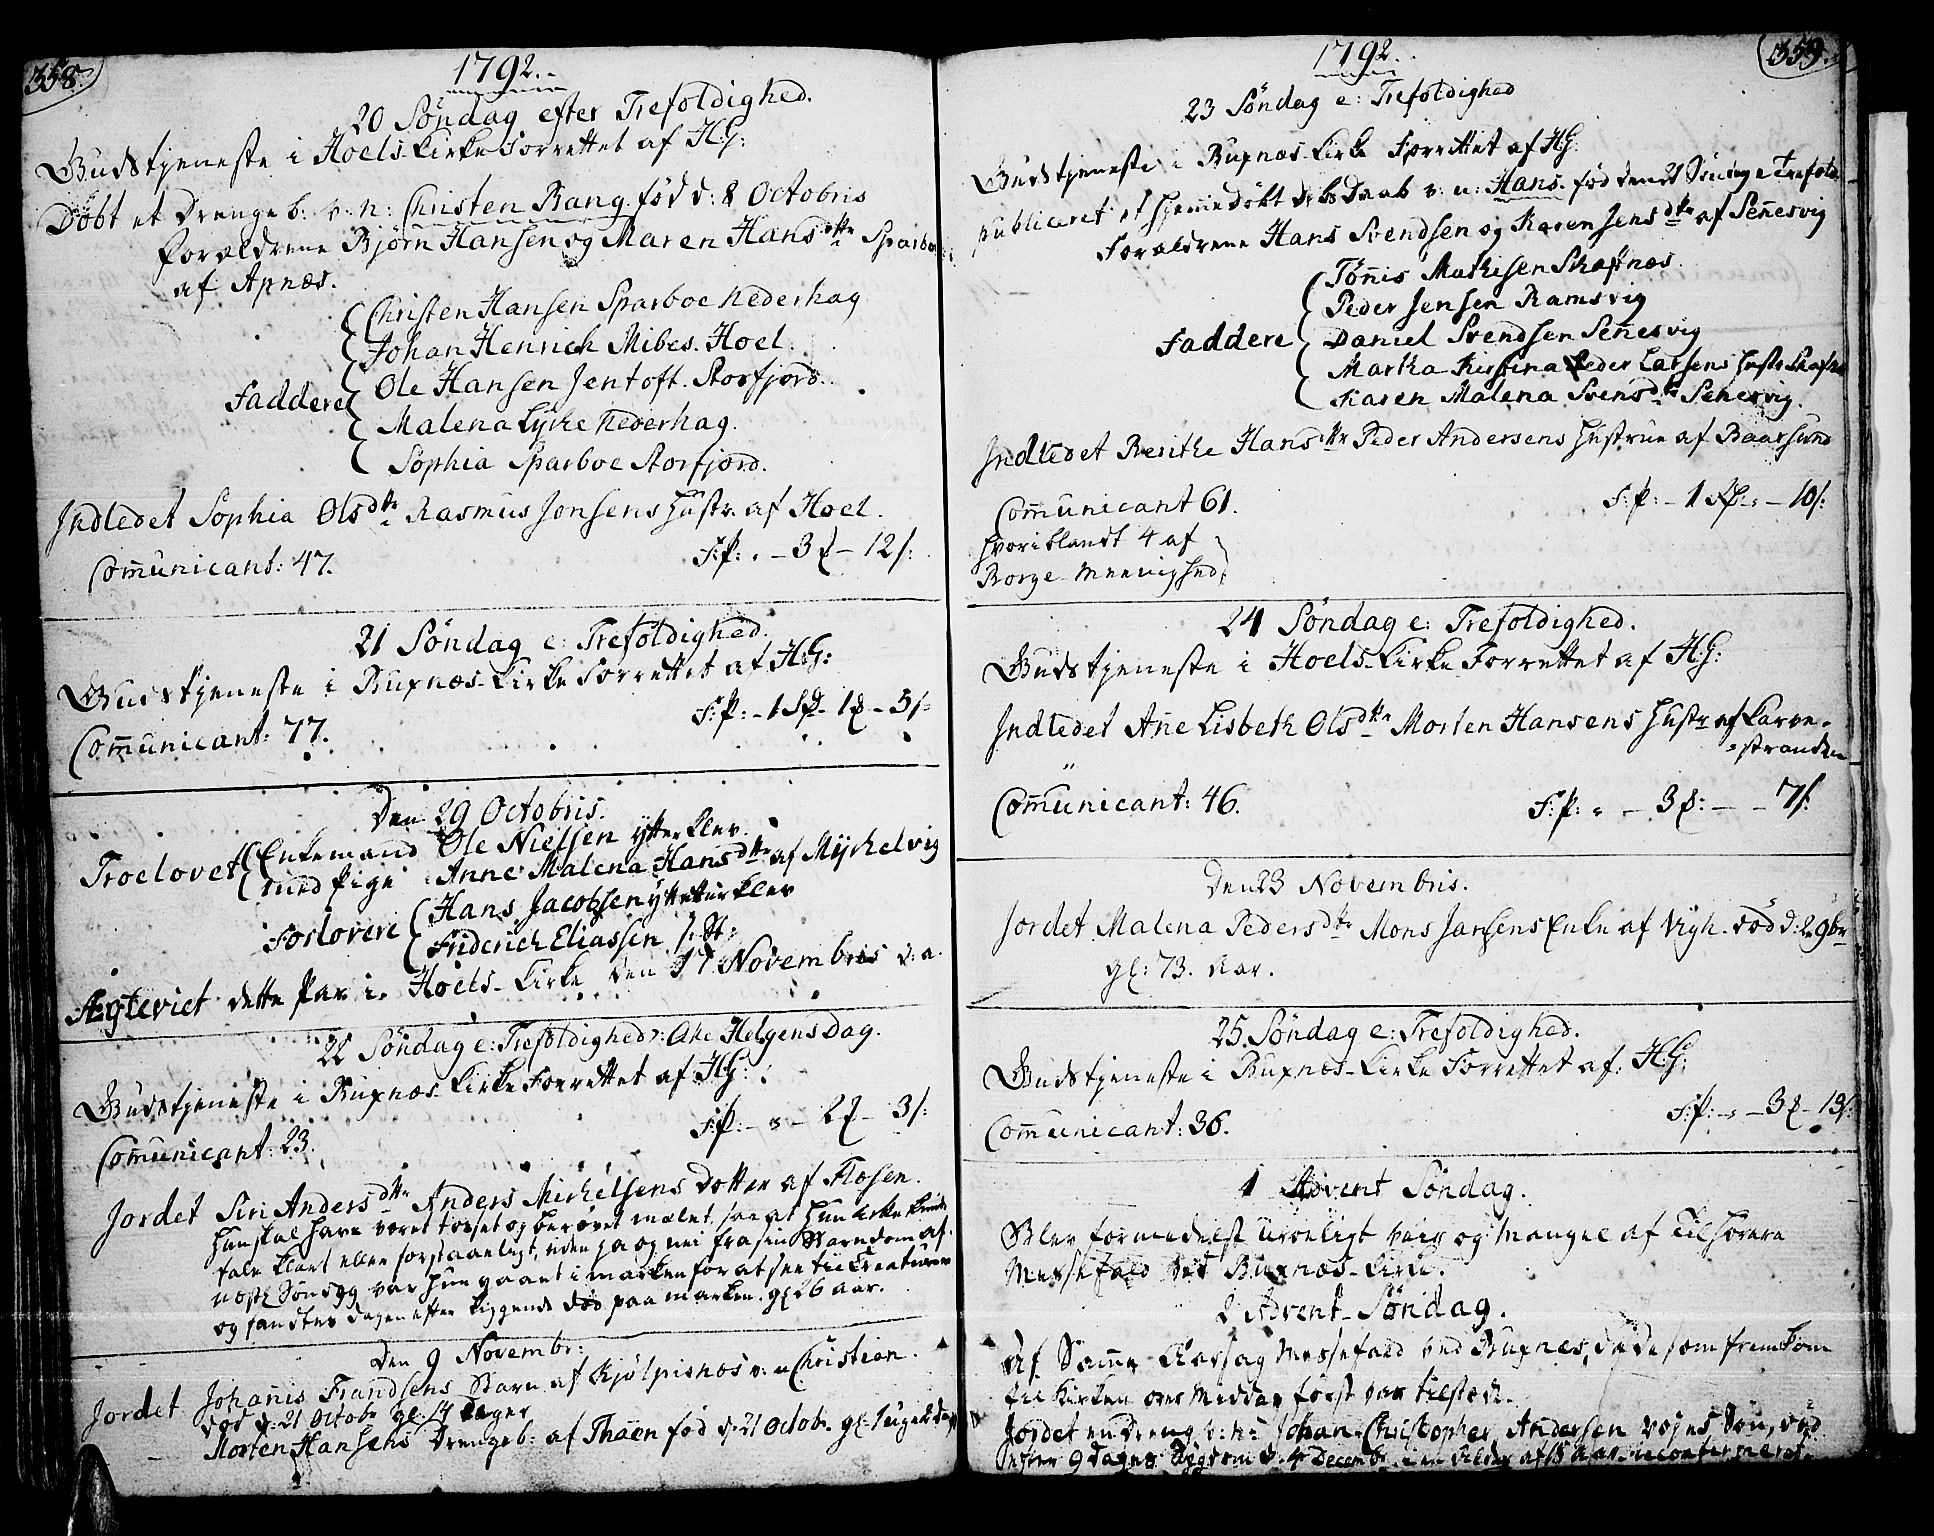 358.
1792.
20 Søndag efter Trefoldighed.
Gudstjeneste i Hoels-Kirke Forrettet af H:G:
Døbt et Drengeb: v: n: Christen Bang fød d: 8 Octobris
Forældrene Bjørn Hansen og Maren Hansdttr Sparboe
af Apnæs.
Christen Hansen Sparboe Nederhag
Johan Henrich Mibes. Hoel
Faddere Ole Hansen Jentoft. Storfjord.
Malena Lyche Nederhag.
Sophia Sparboe Storfjord.
Indledet Sophia Olsdttr Rasmus Jonsens Hustr. af Hoel.
Comunicant: 47. F:P: - 3 - 12/:
21 Søndag e: Trefoldighed.
Gudstjeneste i Buxnæs-Kirke Forrettet af H:G:
Comunicant: 77. F:P: - 1 - 1 - 5/:
Den 29 Octobris.
Troelovet Enkemand Ole Nielsen ytterKlev
med Pige Anne Malena Hansdttr af Myrkelvig
Forlovere Hans Jacobsen ytterKlev
Friderich Eliassen
Ægteviet dette Par i Hoels-Kirke den 17 Novembris d: a.
22 Søndag e: Trefoldighed: Alle Helgens Dag.
Gudstjeneste i Buxnæs-Kirke Forrettet af H:G:
Comunicant: 23. F:P: - 2 - 3/:
Jordet Siri Andersdttr Anders Mickelsens Dotter af Flosen.
Hun skal have været tosset og berøvet mælet, saa at hun ikke kunde
tale klart eller forstaaeligt, uden ja og nei fra sin Barndom af.
næstl. var hun gaaet i marken for at see til Creaturene
og fandtes dagen efter liggende død paa marken. gl 26 aar.
Den 9 Novembr:
Jordet Johanis Frandsens Barn af Kjølpisnæs v: n Christian.
død d: 21 Octobr gl: 14 Dager
Morten Hansens Drengeb: af Thaen fød d: 21 Octobr. gl: 1 uge
359.
1792.
23 Søndag e: Trefoldighed
Gudstjeneste i Buxnæs Kirke Forrettet af H:G:
publiceret et hjemmedøbt Daab v: n: Hans. fød Trefold.
Forældrene Hans Svendsen og Karen Jensdttr af Senesvig
Tønis Mathisen Skafnæs.
Peder Jensen Ramsvig
Faddere Daniel Svendsen Senesvig
Martha Kirstina Peder Larsens Hustr
Karen Malena Svensdttr Senesvig.
Indledet Berithe Hansdttr Peder Andersens Hustrue af Baarsund
Comunicant 61. F:P: - 1 - 10/:
Hvoriblandt 4 af
Borge Meenighed
24 Søndag e: Trefoldighed.
Gudstjeneste i Hoels-Kirke Forrettet af H:G:
Indledet Ane Lisbeth Olsdttr Morten Hansens Hustr af
stranden
Comunicant: 46. F:P: - 3 - 7/:
Den 23 Novembris.
Jordet Malena Pedersdttr Mons Jansens Enke af Vigh. død d: 2 9br
gl: 73. Aar.
25. Søndag e: Trefoldighed.
Gudstjeneste i Buxnæs-Kirke Forrettet af: H:G:
Comunicant: 36. F:P: - 3 - 13/:
1 Advent Søndag.
Blev formedelst Uroeligt veir og Mangel af Tilhørere
Messefald ved Buxnæs-Kirke.
2 Advent-Søndag.
Af Samme Aarsag Messefald ved Buxnæs, da de som fremkom
til Kirken over Middag først var tilstæde.
Jordet en Dreng v: n: Johan Christopher Andersen Søn, død
efter 9 Dages Sygdom d: 4 Decembr i en Alder af 18 Aar